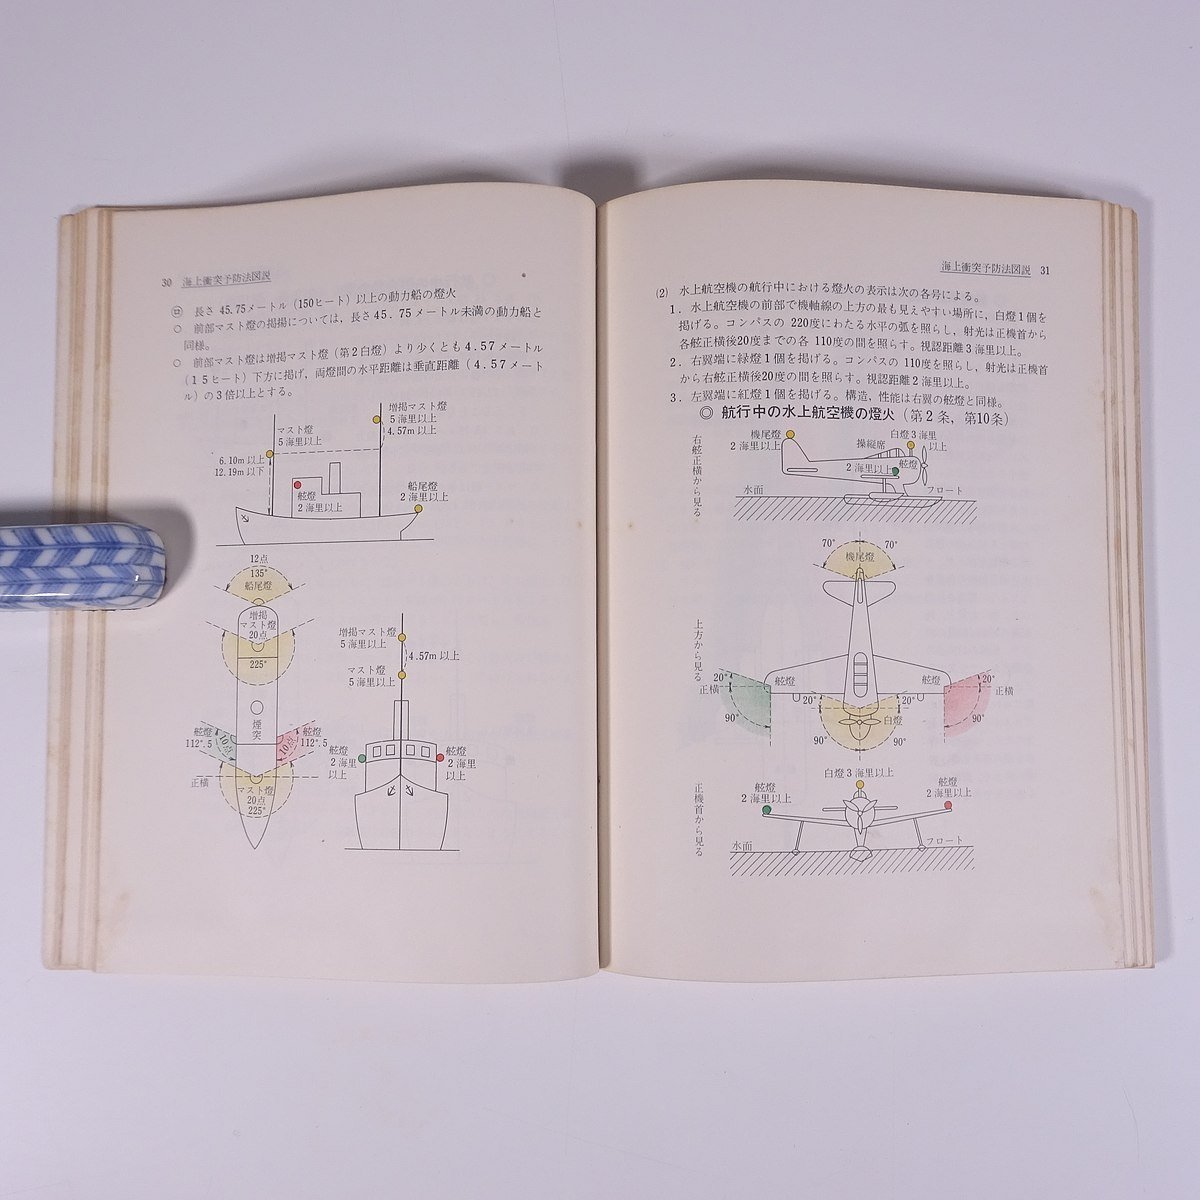 30 海上衝突予防法図説
㋺ 長さ 45.75メートル（150ヒート）以上の動力船の燈火
○ 前部マスト燈の掲揚については，長さ45.75メートル未満の動力船と
同様。
○ 前部マスト燈は増掲マスト燈（第2白燈）より少くとも4.57メートル
（15ヒート）下方に掲げ，両燈間の水平距離は垂直距離（4.57メート
ル）の3倍以上とする。
増掲マスト燈
5 海里以上
4.57m以上
マスト燈
5 海里以上
6.10m以上
12.19m以下
舷燈
2 海里以上
船尾燈
2 海里以上
12点
135°
船尾燈
増掲
マスト燈
20点
225°
煙突
舷燈
112°.5
10点
10点
舷燈
112°.5
正横
マスト燈
20点
225°
増掲マスト燈
5 海里以上
4.57m以上
マスト燈
5 海里以上
舷燈
2 海里
以上
舷燈
2 海里
以上
海上衝突予防法図説 31
(2) 水上航空機の航行中における燈火の表示は次の各号による。
1．水上航空機の前部で機軸線の上方の最も見えやすい場所に，白燈1個を
掲げる。コンパスの 220度にわたる水平の弧を照らし，射光は正機首から
各舷正横後20度までの各 110度の間を照らす。視認距離3海里以上。
2．右翼端に緑燈1個を掲げる。コンパスの 110度を照らし，射光は正機首
から右舷正横後20度の間を照らす。視認距離2海里以上。
3．左翼端に紅燈1個を掲げる。構造，性能は右翼の舷燈と同様。
◎ 航行中の水上航空機の燈火（第2条，第10条）
右舷正横から見る
機尾燈
2 海里以上
操縦席
白燈3海里
以上
2 海里以上
舷燈
水面
フロート
上方から見る
70°
70°
機尾燈
20°
正横
舷燈
舷燈
20°
正横
90°
20°
20°
白燈
90°
90°
90°
正機首から見る
白燈3海里以上
舷燈
2 海里以上
舷燈
2 海里以上
水面
フロート